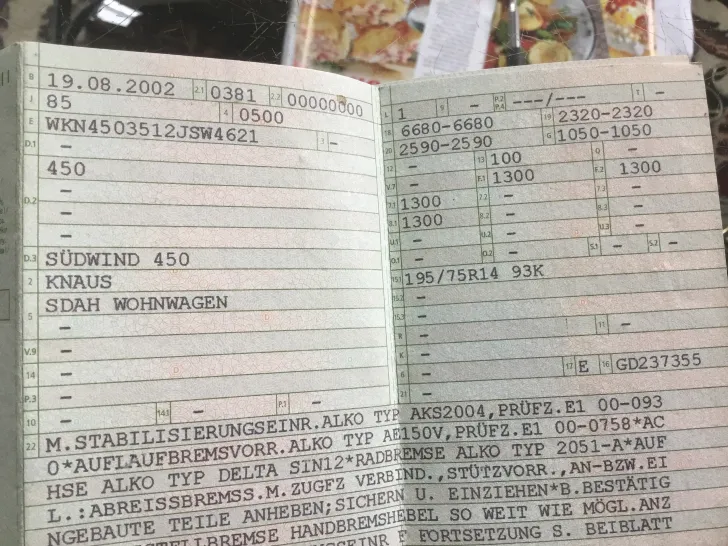 B 19.08.2002 2.1 0381 2.2 00000000
J 85 4 0500
E WKN4503512JSW4621 3 -
D.1 -
450
-
D.2 -
-
-
D.3 SÜDWIND 450
2 KNAUS
SDAH WOHNWAGEN
5 -
-
V.9 -
14 -
P.3 - 14.1 - P.1 -
10 -
L 1 9 - P.2 P.4 ---/--- T -
18 6680-6680 19 2320-2320
20 2590-2590 G 1050-1050
12 - 13 100 Q -
V.7 - F.1 1300 F.2 1300
7.1 1300 7.2 - 7.3 -
8.1 1300 8.2 - 8.3 -
U.1 - U.2 - U.3 -
O.1 - O.2 - S.1 - S.2 -
15.1 195/75R14 93K
15.2 -
15.3 -
R - 11 -
K -
6 - 17 E 16 GD237355
21 -
22 M.STABILISIERUNGSEINR.ALKO TYP AKS2004,PRÜFZ.E1 00-093
0*AUFLAUFBREMSVORR.ALKO TYP AE150V,PRÜFZ.E1 00-0758*AC
HSE ALKO TYP DELTA SIN12*RADBREMSE ALKO TYP 2051-A*AUF
L.:ABREISSBREMSS.M.ZUGFZ VERBIND.,STÜTZVORR.,AN-BZW.EI
NGEBAUTE TEILE ANHEBEN;SICHERN U. EINZIEHEN*B.BESTÄTIG
STELLBREMSE HANDBREMSHEBEL SO WEIT WIE MÖGL.ANZ
FORTSETZUNG S. BEIBLATT